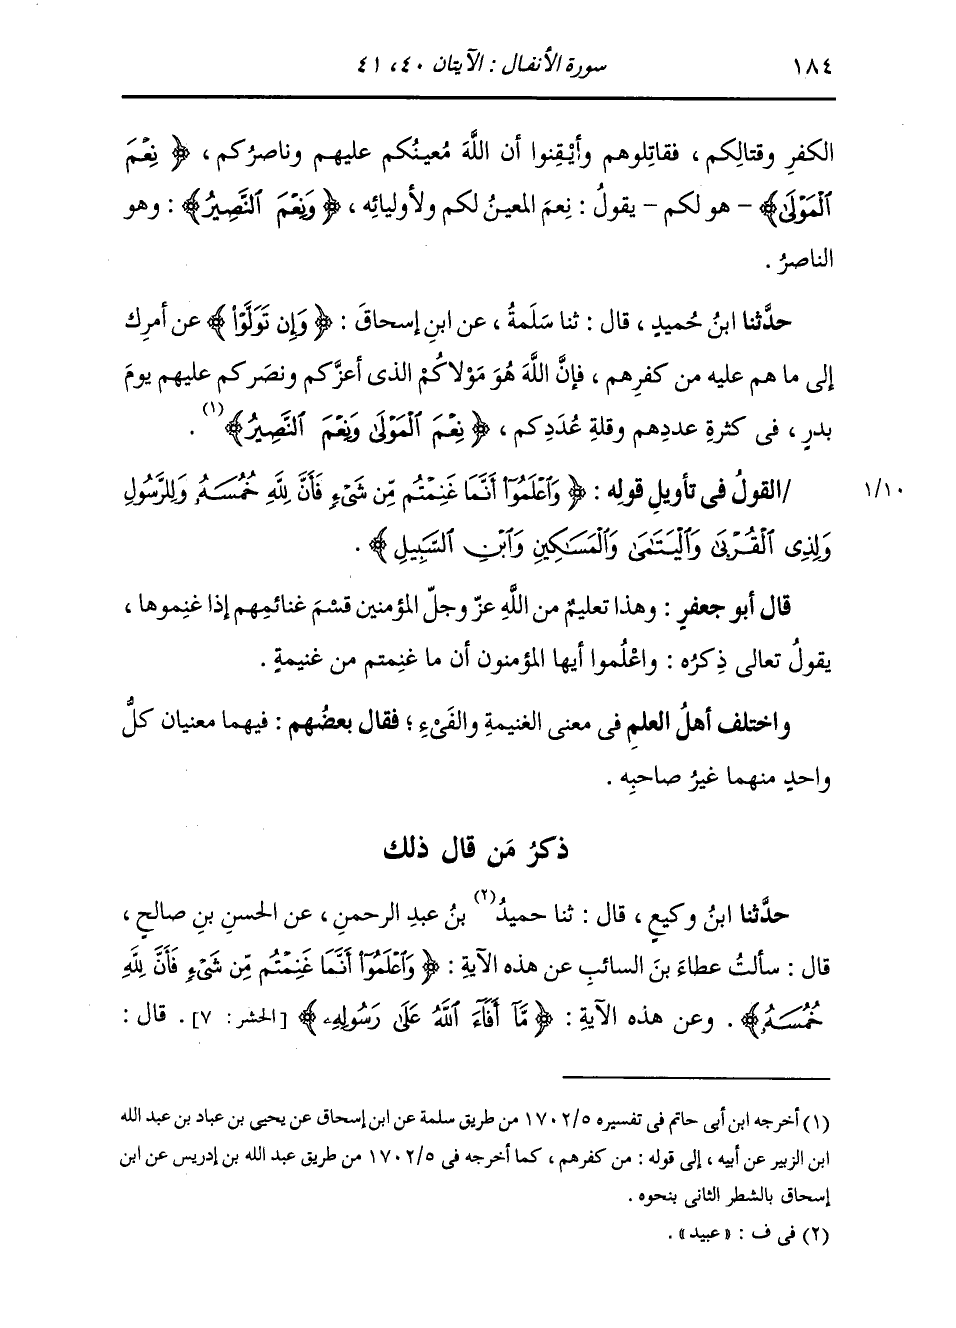 ١٨٤ سورة الأنفال : الآيتان ٤٠، ٤١
الكفرِ وقتالِكم ، فقاتِلوهم وأيْقِنوا أن اللَّهَ مُعينُكم عليهم وناصرُكم ، ﴿ نِعْمَ
ٱلْمَوْلَىٰ﴾ - هو لكم - يقولُ : نِعمَ المعينُ لكم ولأوليائِه ، ﴿ وَنِعْمَ ٱلنَّصِيرُ﴾ : وهو
الناصرُ .
حدَّثنا ابنُ حُميدٍ ، قال : ثنا سَلَمةُ ، عن ابنِ إسحاقَ : ﴿ وَإِن تَوَلَّوْا۟ ﴾ عن أمرِك
إلى ما هم عليه من كفرِهم ، فإنَّ اللَّهَ هُوَ مَوْلاكُمْ الذى أعزَّكم ونصَركم عليهم يومَ
بدرٍ ، فى كثرةِ عددِهم وقلةِ عُدَدِكم ، ﴿ نِعْمَ ٱلْمَوْلَىٰ وَنِعْمَ ٱلنَّصِيرُ﴾(١) .
١/١٠ /القولُ فى تأويلِ قولِه : ﴿ وَٱعْلَمُوٓا۟ أَنَّمَا غَنِمْتُم مِّن شَىْءٍ فَأَنَّ لِلَّهِ خُمُسَهُۥ وَلِلرَّسُولِ
وَلِذِى ٱلْقُرْبَىٰ وَٱلْيَتَـٰمَىٰ وَٱلْمَسَـٰكِينِ وَٱبْنِ ٱلسَّبِيلِ ﴾ .
قال أبو جعفرٍ : وهذا تعليمٌ من اللَّهِ عزّ وجلّ المؤمنين قَسْمَ غنائمِهم إذا غنِموها ،
يقولُ تعالى ذِكرُه : واعْلُموا أيها المؤمنون أن ما غنِمتم من غنيمةٍ .
واختلف أهلُ العلمِ فى معنى الغنيمةِ والفَىْءِ ؛ فقال بعضُهم : فيهما معنيان كلُّ
واحدٍ منهما غيرُ صاحبِه .
ذكرُ مَن قال ذلك
حدَّثنا ابنُ وكيعٍ ، قال : ثنا حميدُ(٢) بنُ عبدِ الرحمنِ ، عن الحسنِ بنِ صالحٍ ،
قال : سألتُ عطاءَ بنَ السائبِ عن هذه الآيةِ : ﴿ وَٱعْلَمُوٓا۟ أَنَّمَا غَنِمْتُم مِّن شَىْءٍ فَأَنَّ لِلَّهِ
خُمُسَهُۥ﴾ . وعن هذه الآيةِ : ﴿ مَّآ أَفَآءَ ٱللَّهُ عَلَىٰ رَسُولِهِۦ ﴾ [الحشر : ٧] . قال :
(١) أخرجه ابن أبى حاتم فى تفسيره ١٧٠٢/٥ من طريق سلمة عن ابن إسحاق عن يحيى بن عباد بن عبد الله
ابن الزبير عن أبيه ، إلى قوله : من كفرهم ، كما أخرجه فى ١٧٠٢/٥ من طريق عبد الله بن إدريس عن ابن
إسحاق بالشطر الثانى بنحوه .
(٢) فى ف : «عبيد» .